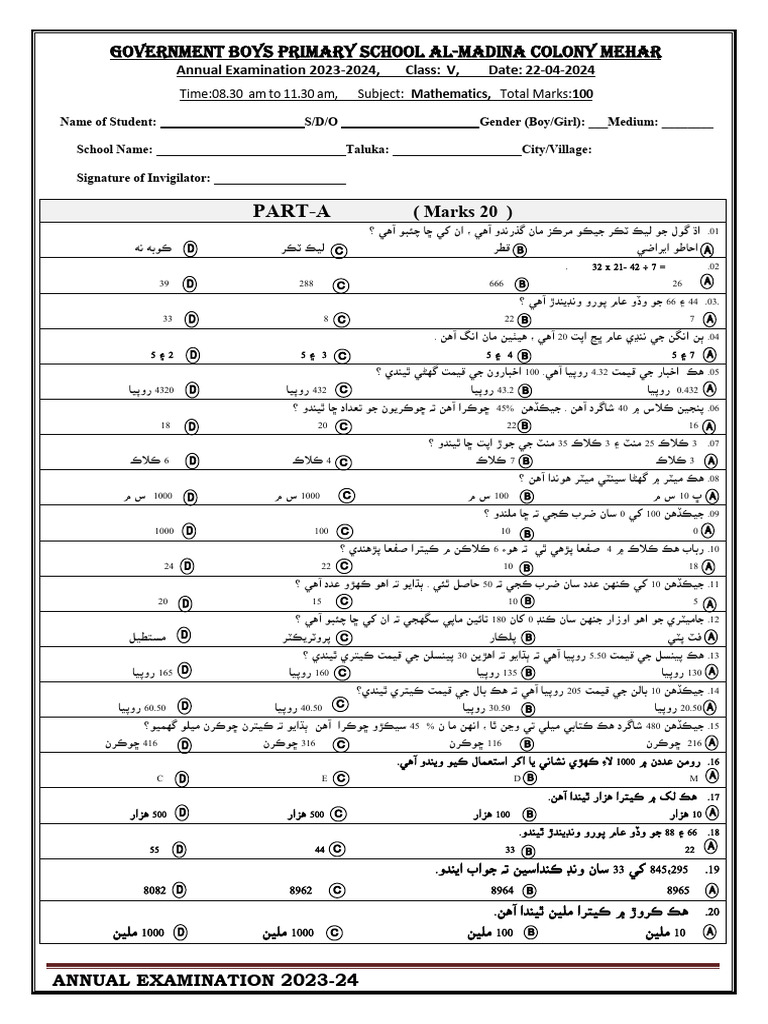 GOVERNMENT BOYS PRIMARY SCHOOL AL-MADINA COLONY MEHAR
Annual Examination 2023-2024, Class: V, Date: 22-04-2024
Time:08.30 am to 11.30 am, Subject: Mathematics, Total Marks:100
Name of Student: ____________________S/D/O ____________________Gender (Boy/Girl): ___Medium: ________
School Name: ____________________________Taluka: ___________________City/Village:
Signature of Invigilator: ___________________
PART-A ( Marks 20 )
01. اڌ گول جو ليڪ ٽڪر جيڪو مرڪز مان گذرندو آهي ، ان کي ڇا چئبو آهي ؟
Ⓐ احاطو ايراضي Ⓑ قطر Ⓒ ليڪ ٽڪر Ⓓ ڪوبہ نہ
02. 32 x 21- 42 ÷ 7 = .
Ⓐ 26 Ⓑ 666 Ⓒ 288 Ⓓ 39
03. 44 ۽ 66 جو وڏو عام پورو ونڊيندڙ آهي ؟
Ⓐ 7 Ⓑ 22 Ⓒ 8 Ⓓ 33
04. ٻن انگن جي ننڍي عام ڀڃ اپت 20 آهي ، هيٺين مان انگ آهن .
Ⓐ 7 ۽ 5 Ⓑ 4 ۽ 5 Ⓒ 3 ۽ 5 Ⓓ 2 ۽ 5
05. هڪ اخبار جي قيمت 4.32 روپيا آهي. 100 اخبارون جي قيمت گھڻي ٿيندي ؟
Ⓐ 0.432 روپيا Ⓑ 43.2 روپيا Ⓒ 432 روپيا Ⓓ 4320 روپيا
06. پنجين ڪلاس ۾ 40 شاگرد آهن . جيڪڏهن 45% ڇوڪرا آهن تہ ڇوڪريون جو تعداد ڇا ٿيندو ؟
Ⓐ 16 Ⓑ 22 Ⓒ 20 Ⓓ 18
07. 3 ڪلاڪ 25 منٽ ۽ 3 ڪلاڪ 35 منٽ جي جوڙ اپت ڇا ٿيندو ؟
Ⓐ 3 ڪلاڪ Ⓑ 7 ڪلاڪ Ⓒ 4 ڪلاڪ Ⓓ 6 ڪلاڪ
08. هڪ ميٽر ۾ گھڻا سينٽي ميٽر هوندا آهن ؟
Ⓐ ڀ 10 س م Ⓑ 100 س م Ⓒ 1000 س م Ⓓ 1000 س م
09. جيڪڏهن 100 کي 0 سان ضرب ڪجي تہ ڇا ملندو ؟
Ⓐ 0 Ⓑ 10 Ⓒ 100 Ⓓ 1000
10. رباب هڪ ڪلاڪ ۾ 4 صفعا پڙهي ٿي تہ هوءَ 6 ڪلاڪن ۾ ڪيترا صفعا پڙهندي ؟
Ⓐ 18 Ⓑ 10 Ⓒ 22 Ⓓ 24
11. جيڪڏهن 10 کي ڪنهن عدد سان ضرب ڪجي تہ 50 حاصل ٿئي . ٻڌايو تہ اهو ڪهڙو عدد آهي ؟
Ⓐ 5 Ⓑ 10 Ⓒ 15 Ⓓ 20
12. جاميٽري جو اهو اوزار جنهن سان ڪنڊ 0 کان 180 تائين ماپي سگھجي تہ ان کي ڇا چئبو آهي ؟
Ⓐ فٽ پٽي Ⓑ پلڪار Ⓒ پروٽريڪٽر Ⓓ مستطيل
13. هڪ پينسل جي قيمت 5.50 روپيا آهي تہ ٻڌايو تہ اهڙين 30 پينسلن جي قيمت ڪيتري ٿيندي ؟
Ⓐ 130 روپيا Ⓑ 135 روپيا Ⓒ 160 روپيا Ⓓ 165 روپيا
14. جيڪڏهن 10 بالن جي قيمت 205 روپيا آهي تہ هڪ بال جي قيمت ڪيتري ٿيندي؟
Ⓐ 20.50 روپيا Ⓑ 30.50 روپيا Ⓒ 40.50 روپيا Ⓓ 60.50 روپيا
15. جيڪڏهن 480 شاگرد هڪ ڪتابي ميلي تي وڃن ٿا ، انهن ما ن % 45 سيڪڙو ڇوڪرا آهن ٻڌايو تہ ڪيترن ڇوڪرن ميلو گھميو؟
Ⓐ 216 ڇوڪرن Ⓑ 116 ڇوڪرن Ⓒ 316 ڇوڪرن Ⓓ 416 ڇوڪرن
16. رومن عددن ۾ 1000 لاءِ ڪهڙي نشاني يا اکر استعمال ڪيو ويندو آهي.
Ⓐ M Ⓑ D Ⓒ E Ⓓ C
17. هڪ لک ۾ ڪيترا هزار ٿيندا آهن.
Ⓐ 10 هزار Ⓑ 100 هزار Ⓒ 500 هزار Ⓓ 500 هزار
18. 66 ۽ 88 جو وڏو عام پورو ونڊيندڙ ٿيندو.
Ⓐ 22 Ⓑ 33 Ⓒ 44 Ⓓ 55
19. 845,295 کي 33 سان ونڊ ڪنداسين تہ جواب ايندو.
Ⓐ 8965 Ⓑ 8964 Ⓒ 8962 Ⓓ 8082
20. هڪ ڪروڙ ۾ ڪيترا ملين ٿيندا آهن.
Ⓐ 10 ملين Ⓑ 100 ملين Ⓒ 1000 ملين Ⓓ 1000 ملين
ANNUAL EXAMINATION 2023-24